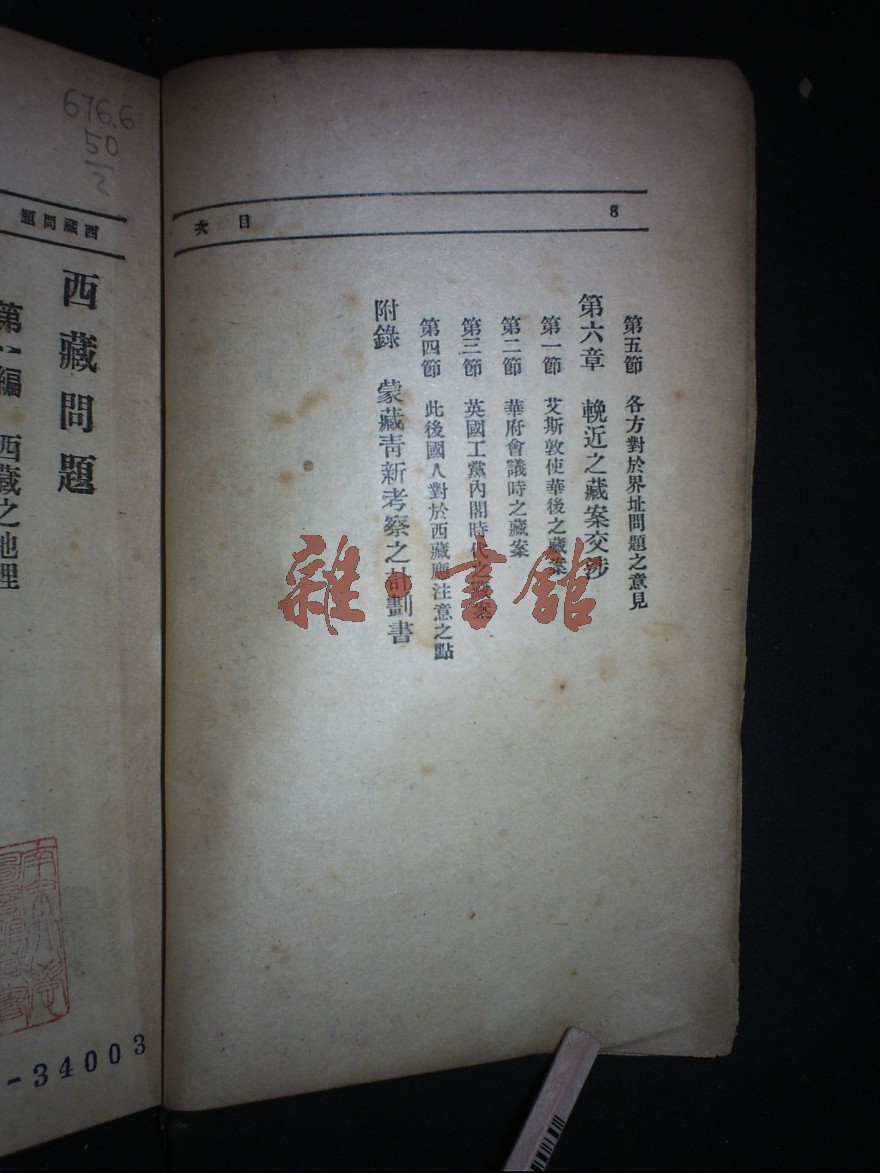 8
目次
第五節 各方對於界址問題之意見
第六章 輓近之藏案交涉
第一節 艾斯敦使華後之藏案
第二節 華府會議時之藏案
第三節 英國工黨內閣時代之藏案
第四節 此後國人對於西藏應注意之點
附錄 蒙藏靑新考察之計劃書
雜·書館
676.6
50
2
西藏問題
西藏問題
第一編 西藏之地理
-34003